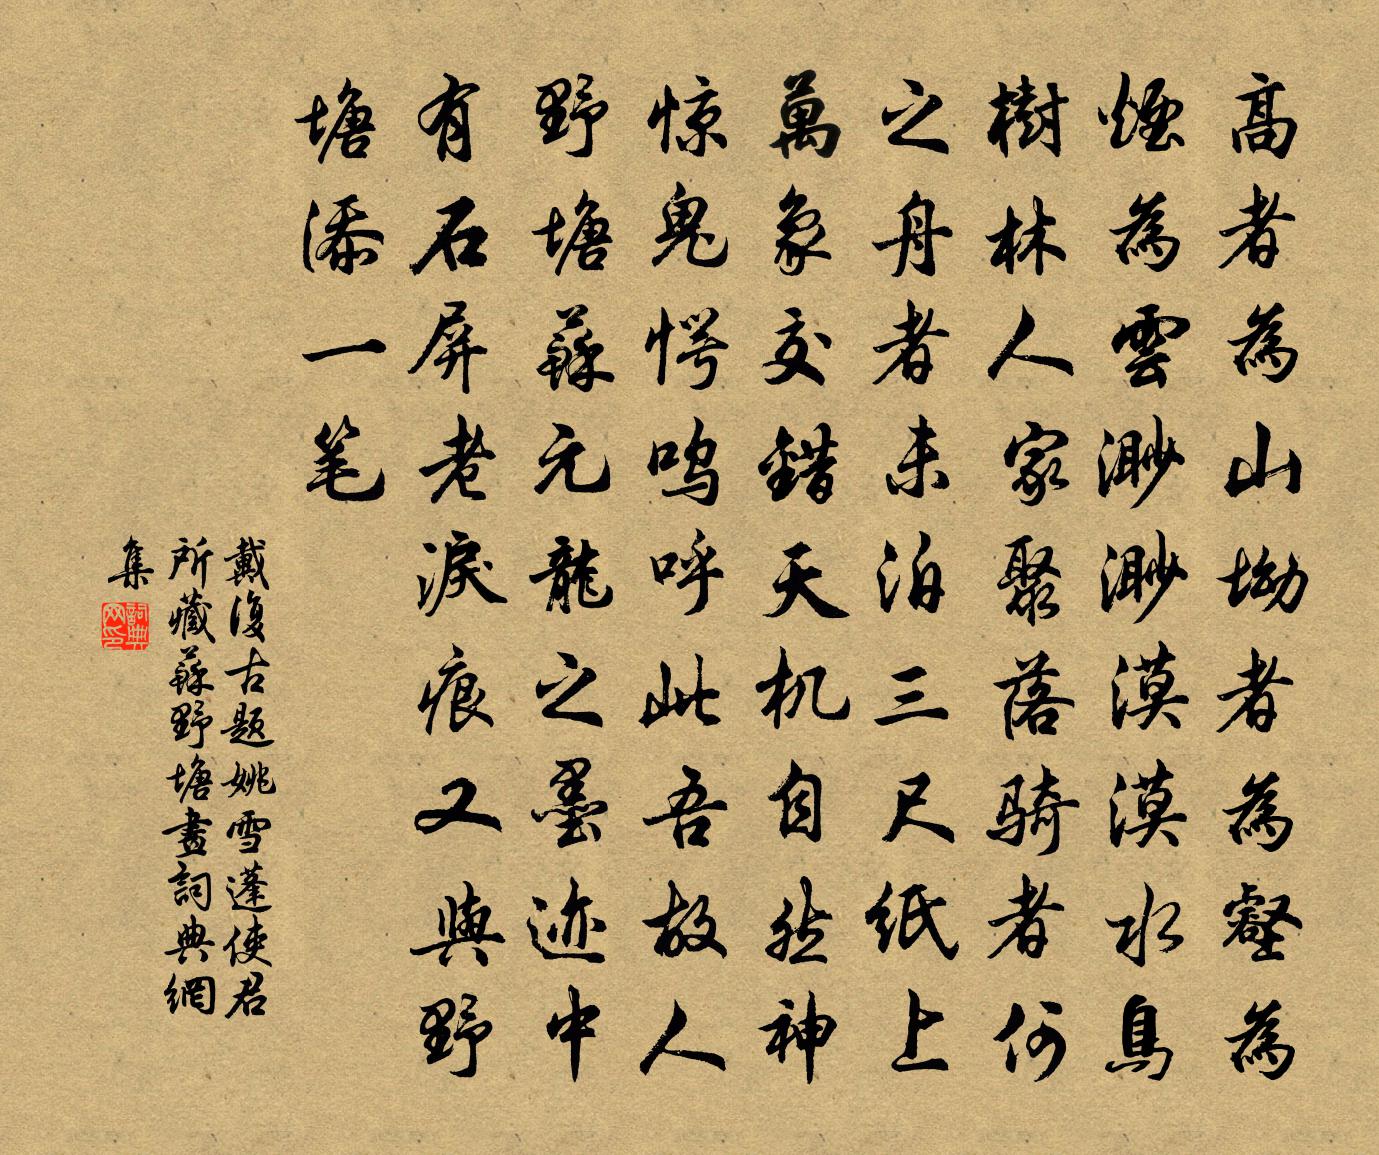 高者為山坳者為壑為
煙為雲渺渺漠漠水鳥
樹林人家聚落骑者何
之舟者未泊三尺纸上
萬象交錯天机自然神
惊鬼愕鸣呼此吾故人
野塘蘇元龍之墨迹中
有石屏老淚痕又與野
塘添一笔
戴復古題姚雪蓬使君
所藏蘇野塘畫詞典網
集
詞典網印